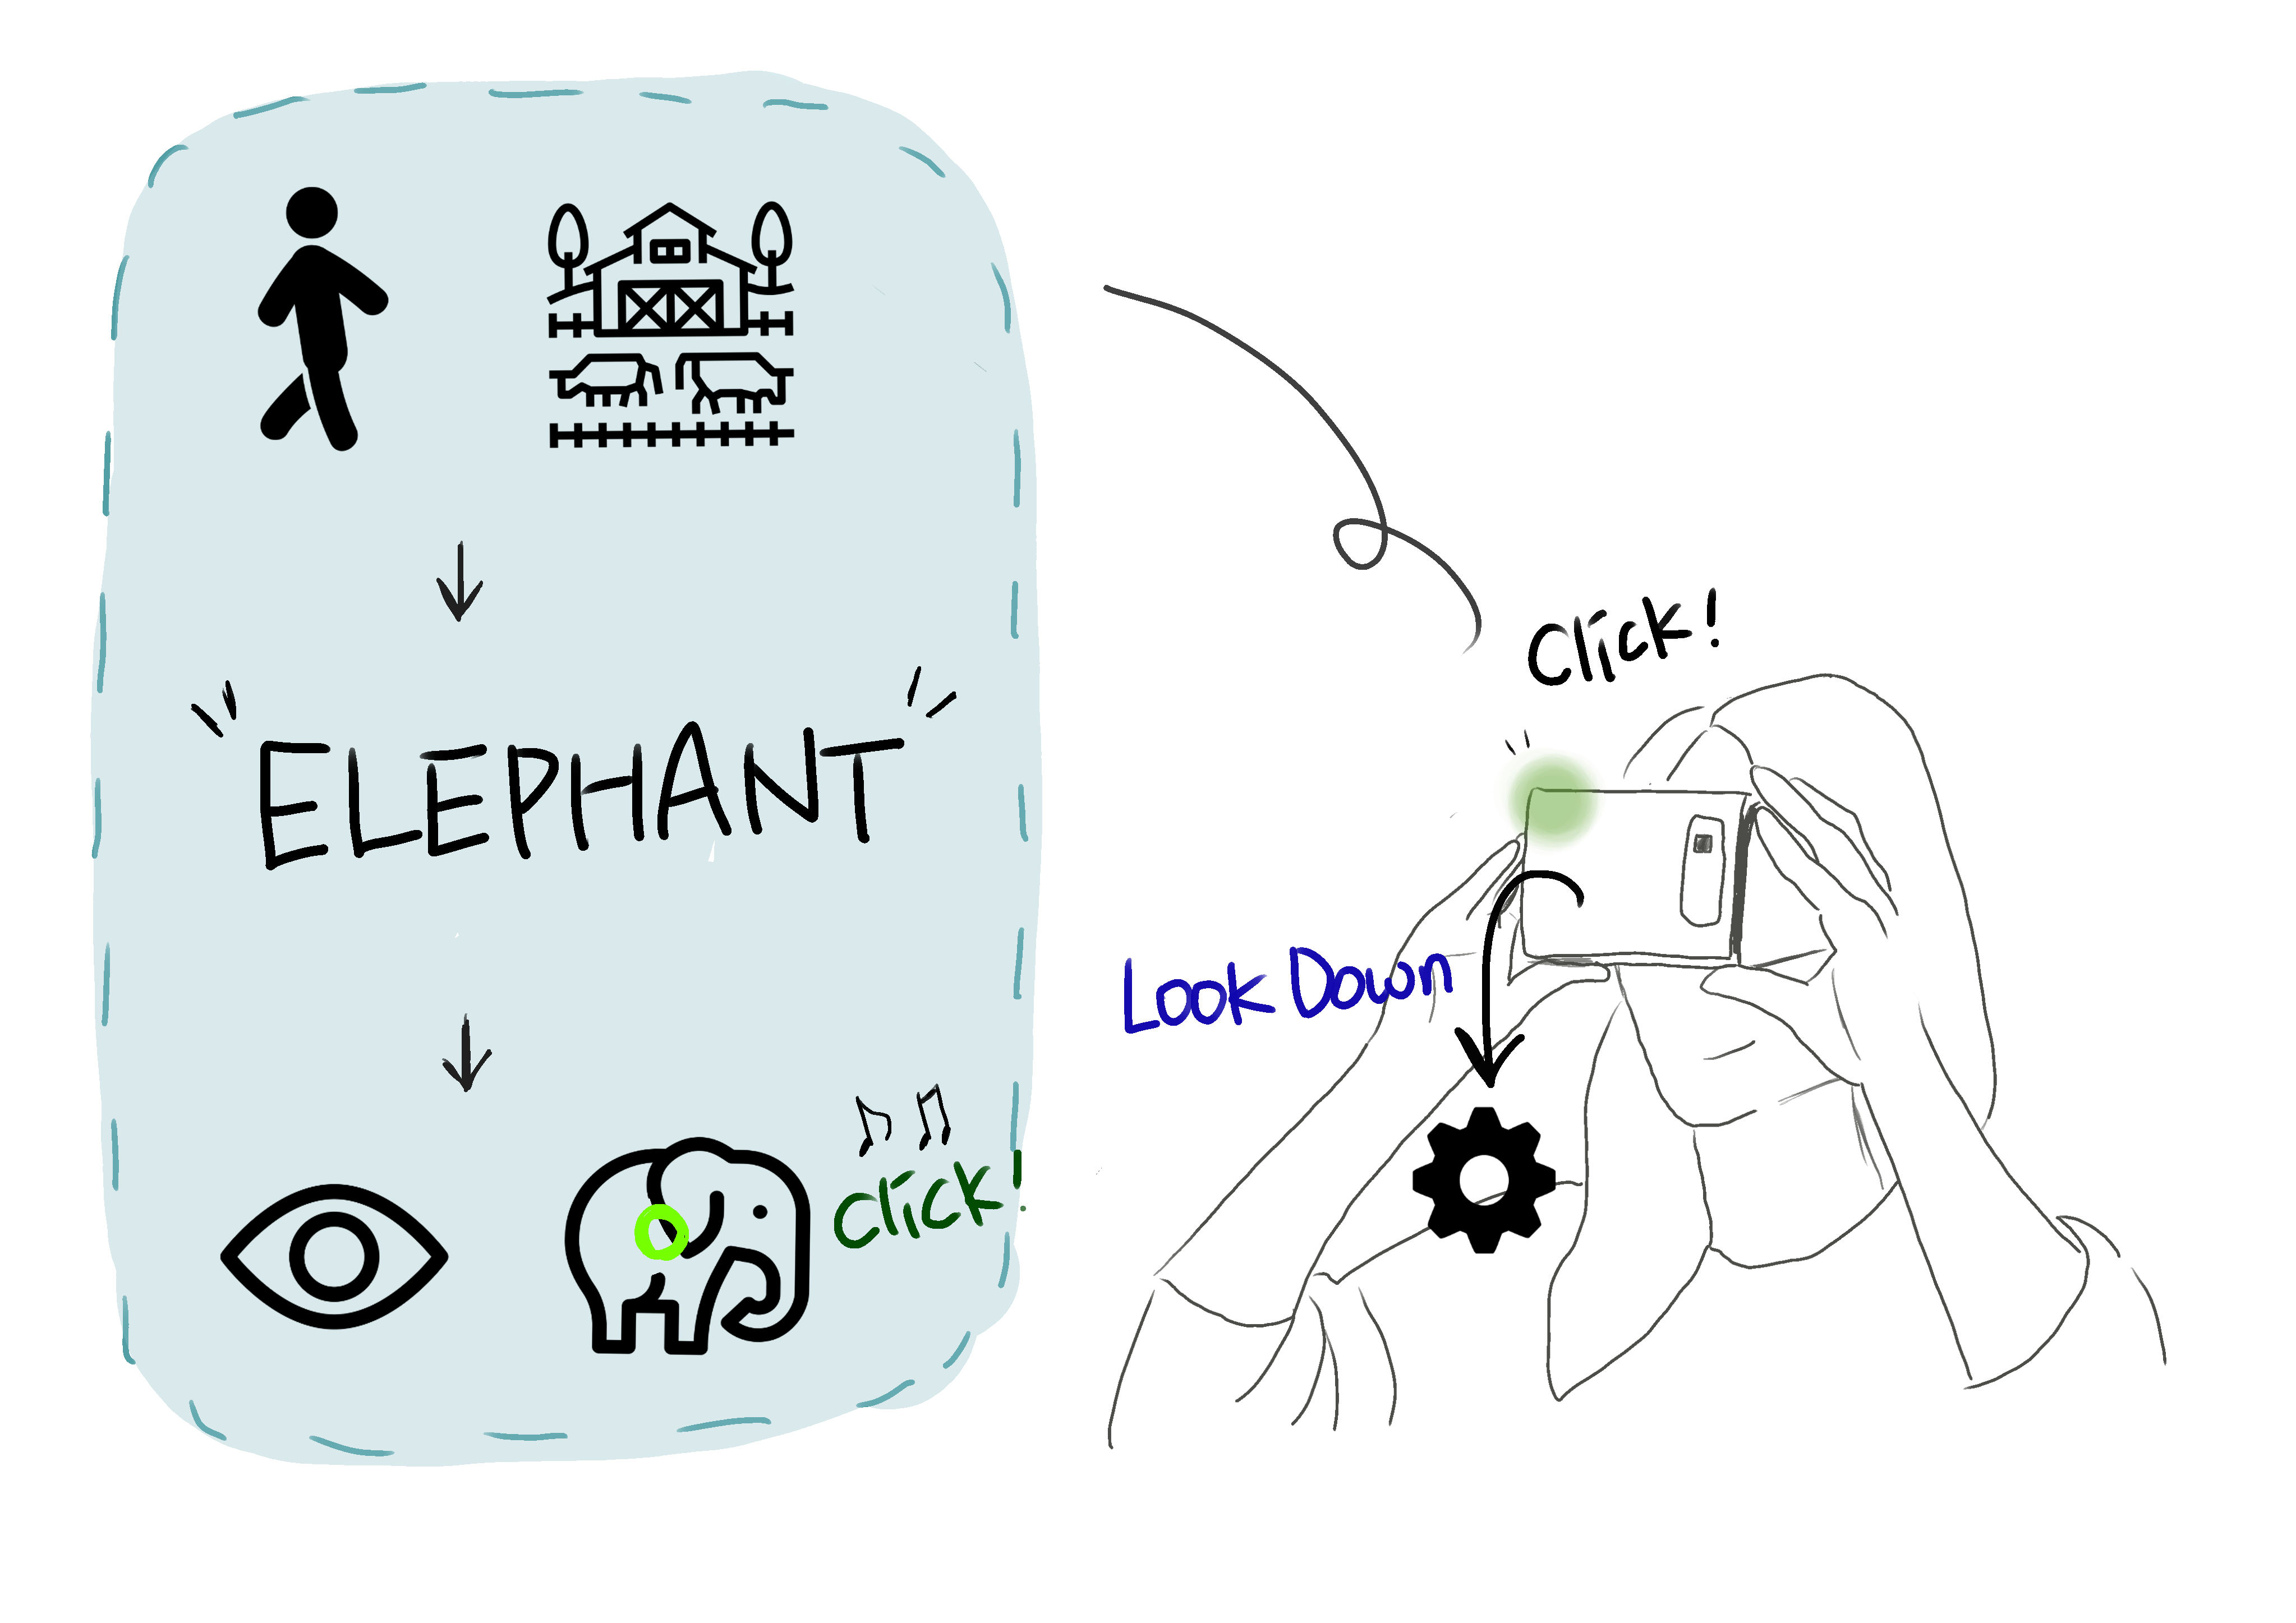 ELEPHANT
click!
Click!
Look Down